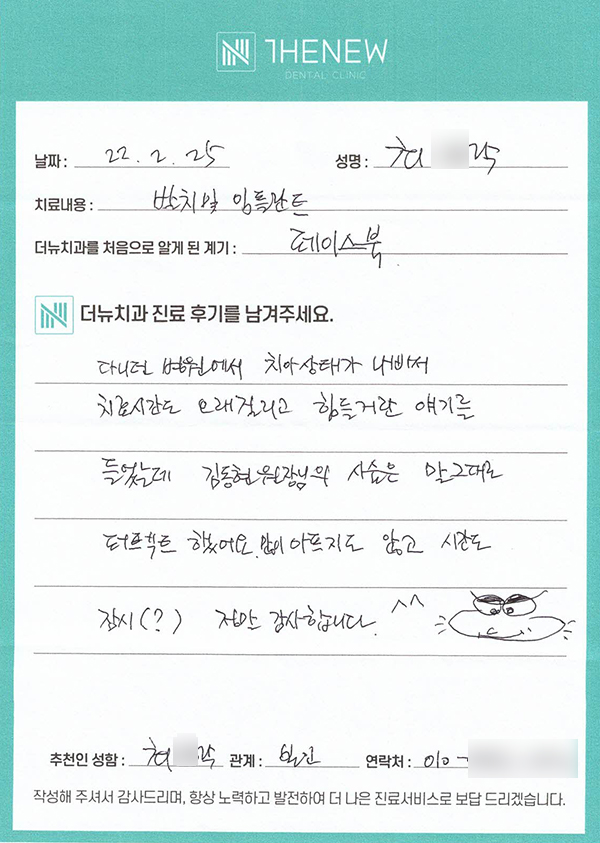 THENEW
DENTAL CLINIC
날짜 : 22. 2. 25 성명 :
치료내용 : 발치및 임플란트
더뉴치과를 처음으로 알게 된 계기 : 페이스북
더뉴치과 진료 후기를 남겨주세요.
다니던 병원에서 치아상태가 나빠서
치료시간도 오래걸리고 힘들거란 얘기를
들었는데 김동현원장님의 시술은 말그대로
퍼프팩트 했어요. 많이 아프지도 않고 시간도
잠시(?) 저만 감사합니다. ^^
추천인 성함 : 관계 : 본인 연락처 : 010 -
작성해 주셔서 감사드리며, 항상 노력하고 발전하여 더 나은 진료서비스로 보답 드리겠습니다.